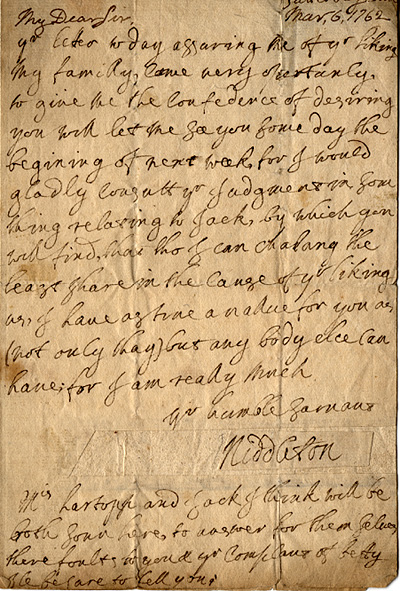 My Dear Sir.
Mar, 6, 1762
yr Letter to day assuring me of yr liking
My familly, Came very opertunly,
to give me the Confedence of desiring
you will let me see you some day the
begining of next week, for I would
gladly Consult yr Judgment in som
thing relating to Jack, by which you
will find, that tho I can chalang the
least share in the Cause of yr liking
us, I have as true a vallue for you as
(not only thay) but any body else Can
have; for I am really Much
yr humble Sarvant
Middleton
Mrs hartopp and Jack I think will be
both soun here, to answer for them selves
there foults
to tell you;